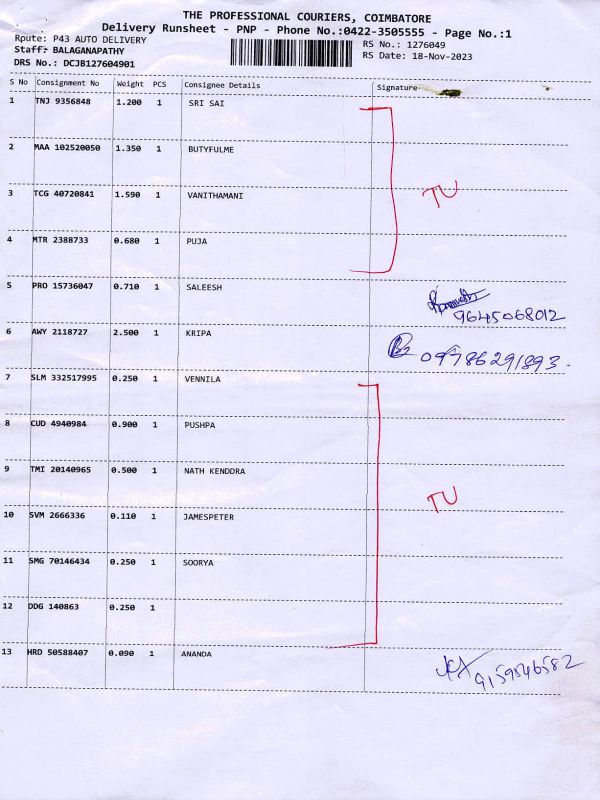 THE PROFESSIONAL COURIERS, COIMBATORE
Delivery Runsheet - PNP - Phone No.:0422-3505555 - Page No.:1
Route: P43 AUTO DELIVERY
RS No.: 1276049
Staff: BALAGANAPATHY
RS Date: 18-Nov-2023
DRS No.: DCJB127604901
S No Consignment No Weight PCS Consignee Details Signature
1 TNJ 9356848 1.200 1 SRI SAI
2 MAA 102520050 1.350 1 BUTYFULME
3 TCG 40720841 1.590 1 VANITHAMANI
TU
4 MTR 2388733 0.680 1 PUJA
5 PRO 15736047 0.710 1 SALEESH
9645068012
6 AWY 2118727 2.500 1 KRIPA
09786291893.
7 SLM 332517995 0.250 1 VENNILA
8 CUD 4940984 0.900 1 PUSHPA
9 TMI 20140965 0.500 1 NATH KENDDRA
TU
10 SVM 2666336 0.110 1 JAMESPETER
11 SMG 70146434 0.250 1 SOORYA
12 DDG 140863 0.250 1
13 HRD 50588407 0.090 1 ANANDA
9159546582